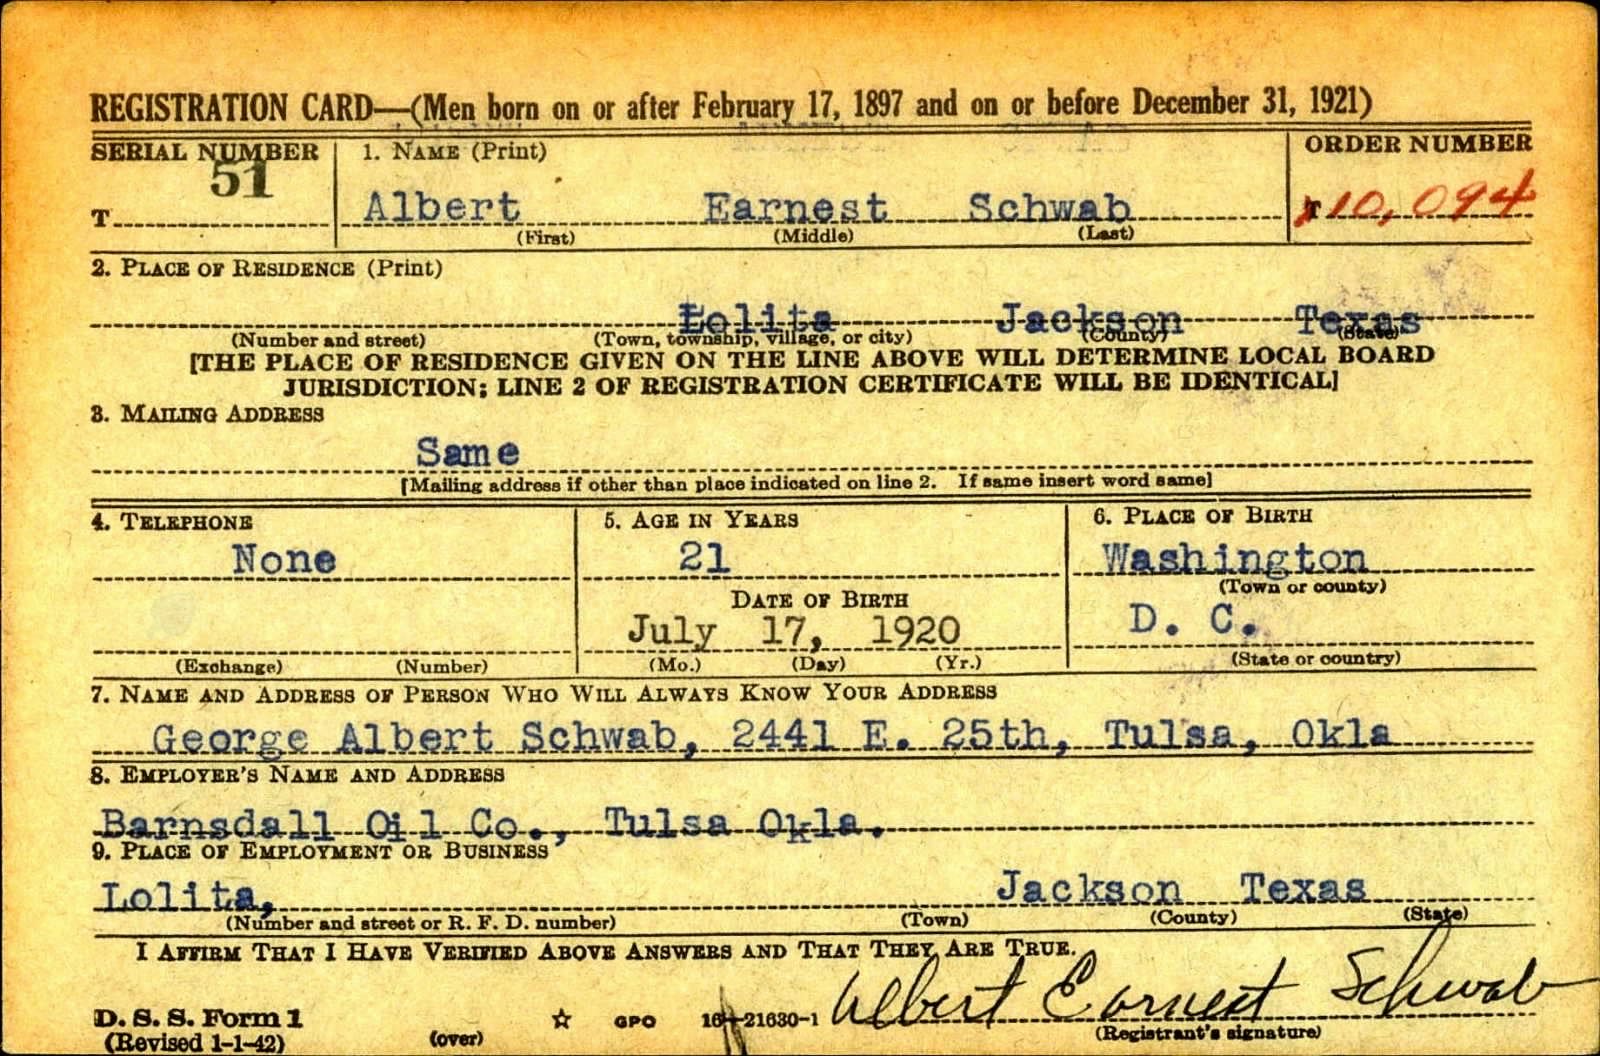 REGISTRATION CARD—(Men born on or after February 17, 1897 and on or before December 31, 1921)
SERIAL NUMBER 1. NAME (Print) ORDER NUMBER
51
T Albert Earnest Schwab T10,094
(First) (Middle) (Last)
2. PLACE OF RESIDENCE (Print)
Lolita Jackson Texas
(Number and street) (Town, township, village, or city) (County) (State)
[THE PLACE OF RESIDENCE GIVEN ON THE LINE ABOVE WILL DETERMINE LOCAL BOARD
JURISDICTION; LINE 2 OF REGISTRATION CERTIFICATE WILL BE IDENTICAL]
3. MAILING ADDRESS
Same
[Mailing address if other than place indicated on line 2. If same insert word same]
4. TELEPHONE 5. AGE IN YEARS 6. PLACE OF BIRTH
None 21 Washington
(Town or county)
DATE OF BIRTH
July 17, 1920 D. C.
(Exchange) (Number) (Mo.) (Day) (Yr.) (State or country)
7. NAME AND ADDRESS OF PERSON WHO WILL ALWAYS KNOW YOUR ADDRESS
George Albert Schwab, 2441 E. 25th, Tulsa, Okla
8. EMPLOYER'S NAME AND ADDRESS
Barnsdall Oil Co., Tulsa Okla.
9. PLACE OF EMPLOYMENT OR BUSINESS
Lolita, Jackson Texas
(Number and street or R. F. D. number) (Town) (County) (State)
I AFFIRM THAT I HAVE VERIFIED ABOVE ANSWERS AND THAT THEY ARE TRUE.
Albert Earnest Schwab
D. S. S. Form 1
(Revised 1-1-42) (over) ☆ GPO 16—21630-1 (Registrant's signature)